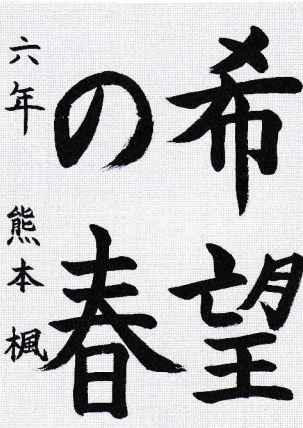 希望
の春
六年 熊本 楓